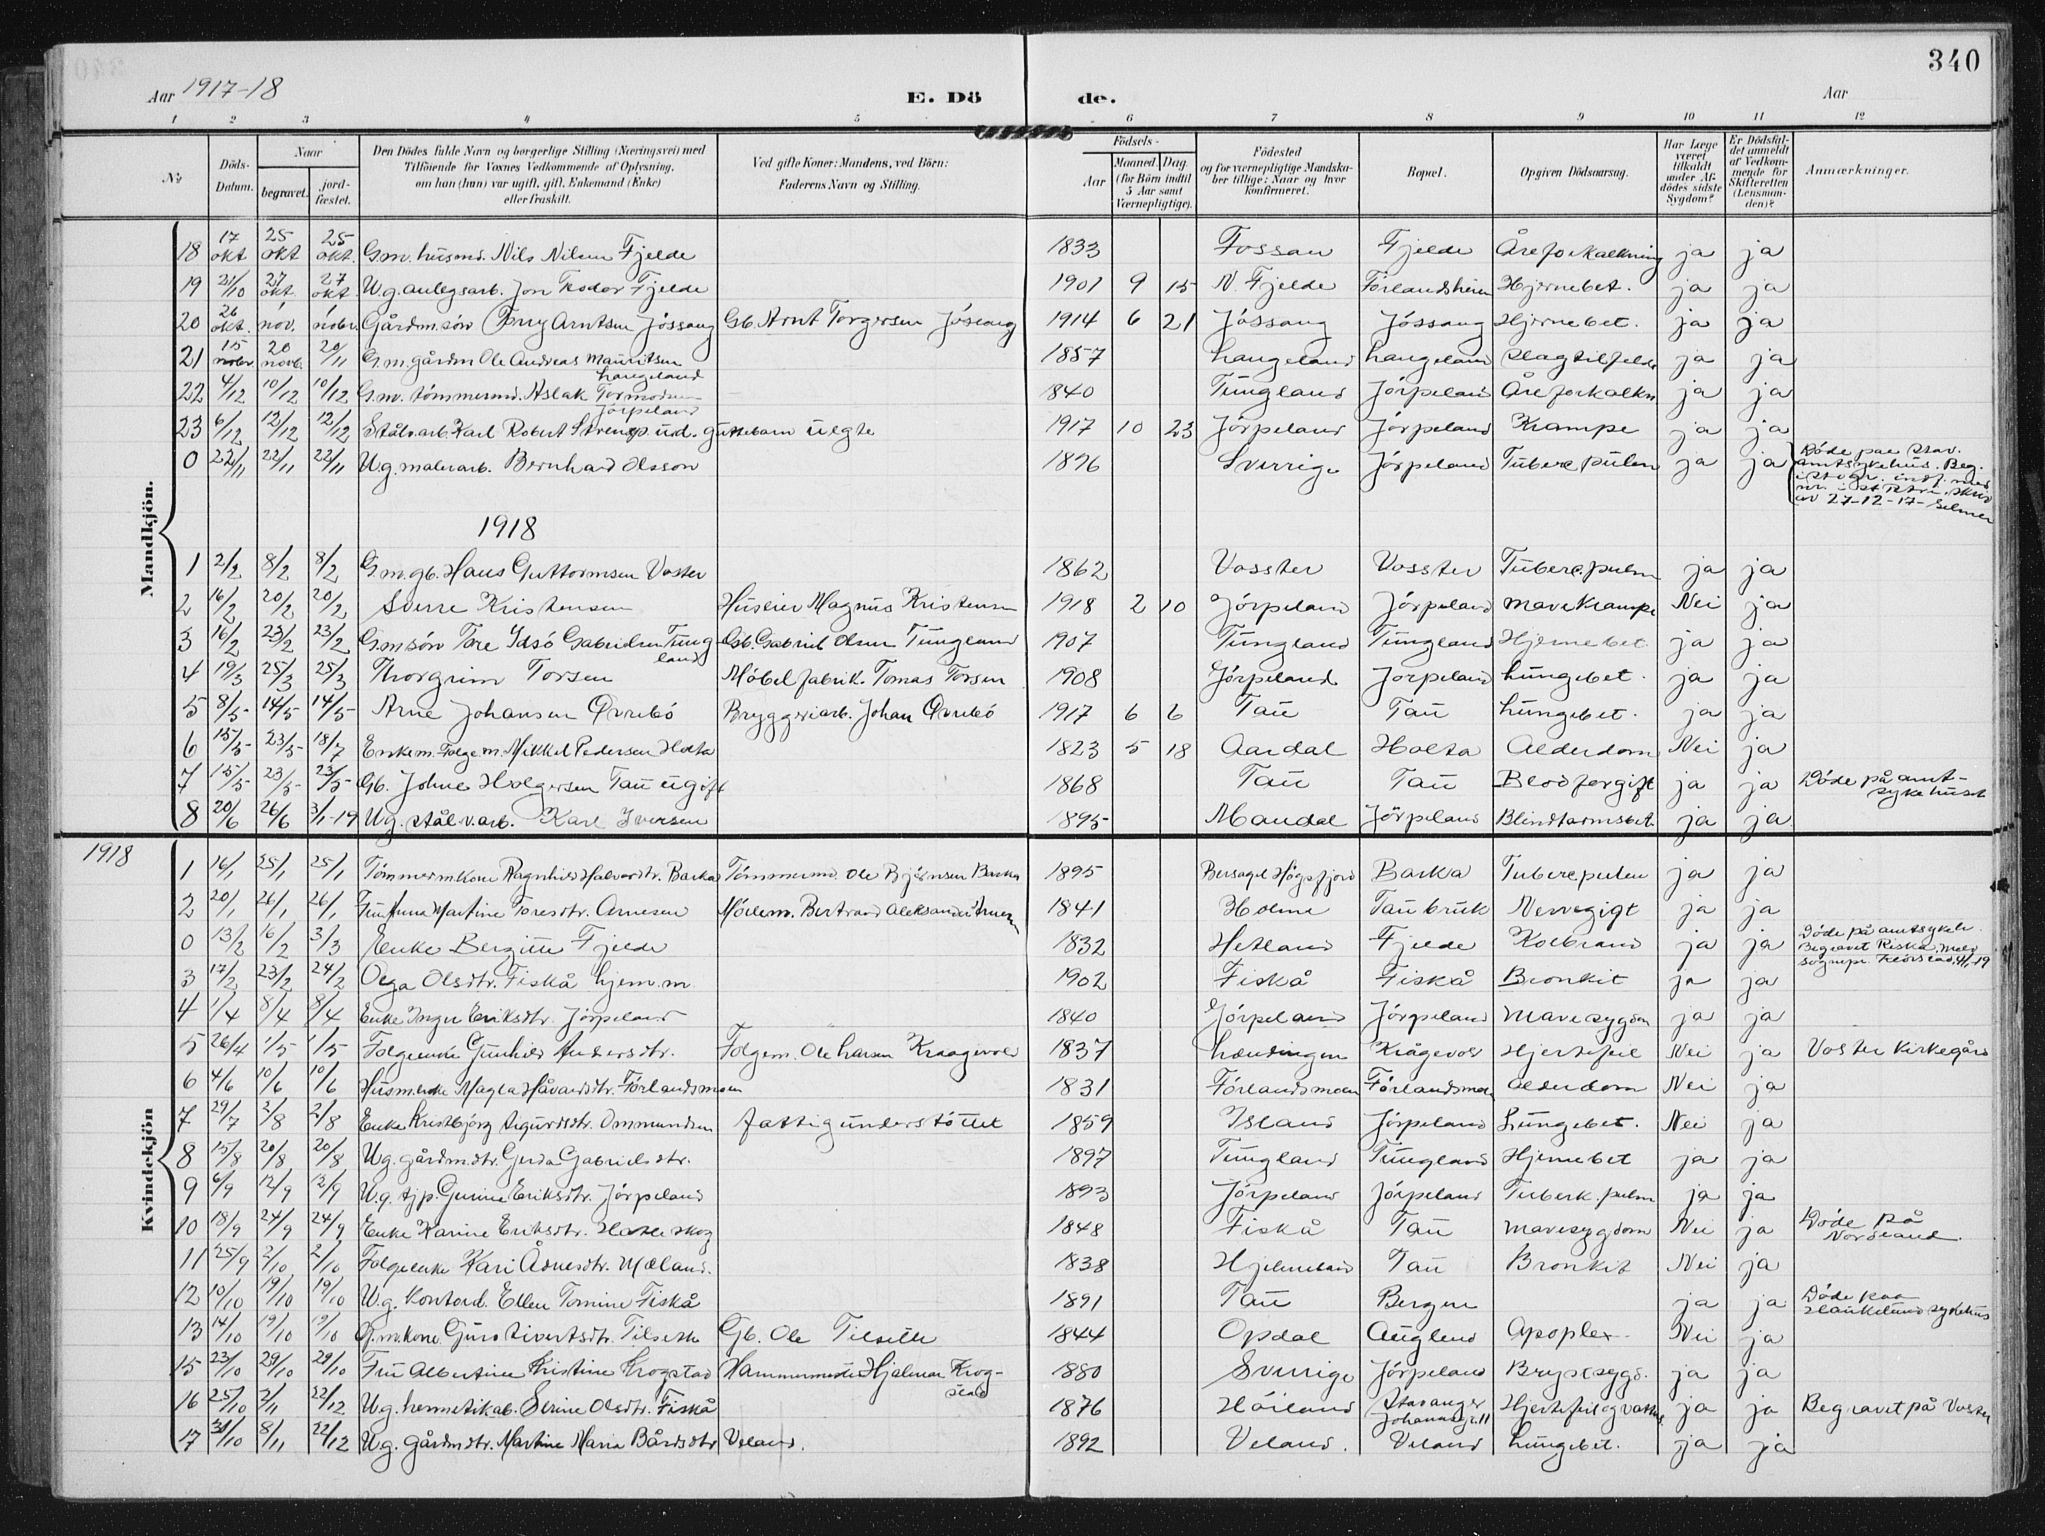 340
Aar 1917-18 E. Dö de. Aar
1 2 3 4 5 6 7 8 9 10 11 12
No Döds-Datum. Naar begravet. jord-fæstet. Den Dödes fulde Navn og borgerlige Stilling (Næringsvei) med Tilföiende for Voxnes Vedkommende af Oplysning, om han (hun) var ugift, gift, Enkemand (Enke) eller fraskilt. Ved gifte Koner: Mandens, ved Börn: Faderens Navn og Stilling. Födsels- Aar Maaned. Dag. (for Börn indtil 5 Aar samt Værnepligtige). Födested og for værnepligtige Mandskaber tillige: Naar og hvor konfirmeret. Bopæl. Opgiven Dödsaarsag. Har Læge været tilkaldt under Afdödes sidste Sygdom? Er Dödsfaldet anmeldt af Vedkommende for Skifteretten (Lensmanden)? Anmærkninger.
Mandkjön.
18 17 okt 25 okt 25 okt. G.m. husmd. Nils Nilsen Fjelde 1833 Fossan Fjelde Åreforkalkning ja ja
19 21/10 27 okt. 27 okt. U.g. anlegsarb. Jon Teodor Fjelde 1901 9 15 N. Fjelde Förlandsheien Hjernebet. ja ja
20 26 okt. 1 nov. 1 novbr. Gårdm. sön Terry Arntsen Jössang Gb. Arnt Torgersen Jössang 1914 6 21 Jössang Jössang Hjernebet. ja ja
21 15 novbr. 20 novb. 20/11 G.m. gårdm Ole Andreas Mauritsen Langeland 1857 Langeland Langeland Slagtilfelde ja ja
22 4/12 10/12 10/12 G.m. tömmermd. Aslak Tormodsen Jörpeland 1840 Tungland Jörpeland Åreforkalkn ja ja
23 6/12 12/12 12/12 Stålv.arb. Karl Robert Strensp ud. guttebarn uegte 1917 10 23 Jörpeland Jörpeland Krampe ja ja
0 22/11 22/11 22/11 U.g. malerarb. Bernhard Olsson 1896 Sverrige Jörpeland Tuberc. pulm ja ja Döde paa Stav. amtsykehus. Beg. i Stvgr. indf. med nr. i St Petri. Skriv av 27-12-17- Selmer
1918
1 2/2 8/2 8/2 G.m. gb. Hans Guttormsen Voster 1862 Vosster Vosster Tuberc. pulm ja ja
2 16/2 20/2 20/2 Sverre Kristensen Huseier Magnus Kristensen 1918 2 10 Jörpeland Jörpeland Mavekrampe Nei ja
3 16/2 23/2 23/2 G.m sön Tore Idsö Gabrielsen Tungland Gb. Gabriel Olsen Tungland 1907 Tungland Tungland Hjernebet. ja ja
4 19/3 25/3 25/3 Thorgrim Torsen Möbelfabrik. Tomas Torsen 1908 Jörpeland Jörpeland Lungebet. ja ja
5 8/5 14/5 14/5 Arne Johansen Øvrebö Bryggeriarb. Johan Øvrebö 1917 6 6 Tau Tau Lungebet. ja ja
6 15/5 23/5 18/7 Enkem. Folgem. Mikkel Pedersen Holta 1823 5 18 Aardal Holta Alderdom Nei ja
7 15/5 23/5 23/5 Gb. Johne Holgersen Tau ugift 1868 Tau Tau Blodforgift ja ja Döde på amtsykehuset
8 20/6 26/6 3/1-19 U.g. stålv.arb. Karl Iversen 1895 Mandal Jörpeland Blindtarmsbet. ja ja
1918
Kvindekjön
1 16/1 25/1 25/1 Tömmerm.kone Ragnhild Halvorsdtr. Barka Tömmermd. Ole Björnsen Barka 1895 Bersagel Högsfjord Barka Tubercpulm ja ja
2 20/1 26/1 26/1 Fru Anna Martine Toresdtr. Arnesen Mölem. Bertrand Aleksander Arnesen 1841 Holme Tau bruk Nervegigt ja ja
0 13/2 16/2 3/3 Enke Bergitte Fjelde 1832 Hetland Fjelde Kolbrand ja ja Döde på amtsykeh. Begravet Riska. Meld sognepr. 4/1 19
3 17/2 23/2 24/2 Olga Olsdtr. Fiskå hjem.m. 1902 Fiskå Fiskå Bronkit ja ja
4 1/4 8/4 8/4 Enke Inger Eriksdtr. Jörpeland 1840 Jörpeland Jörpeland Mavesygdom ja ja
5 26/4 1/5 1/5 Folgeenke Gunhild Andersdtr. Folgem. Ole Larsen Kraagevold 1837 Lændingen Krågevol Hjertefeil Nei ja Voster kirkegård
6 4/6 10/6 10/6 Husm.enke Magla Håvardsdtr. Förlandsmoen 1831 Förlandsmoen Förlandsmoen Alderdom Nei ja
7 29/7 2/8 2/8 Enke Kristbjörg Sigurdsdtr. Ommundsen fattigunderstöttet 1859 Island Jörpeland Lungebet. Nei ja
8 15/8 20/8 20/8 U.g. gårdm.dtr. Gerda Gabrielsdtr. 1897 Tungland Tungland Hjernebet ja ja
9 6/9 12/9 12/9 U.g. tjp. Gurine Eriksdtr. Jörpeland 1893 Jörpeland Jörpeland Tuberk. pulm ja ja
10 18/9 24/9 24/9 Enke Karine Eriksdtr. Hatleskog 1848 Fiskå Tau Mavesygdom Nei ja Döde på Nordland.
11 25/9 2/10 2/10 Folgeenke Kari Ådnesdtr. Mæland. 1838 Hjelmeland Tau Bronkit Nei ja
12 10/10 19/10 19/10 U.g. kontord. Ellen Tomine Fiskå 1891 Tau Bergen ja ja Döde paa Haukeland sykehus
13 14/10 19/10 19/10 G.m.kone Guro Sivertsdtr. Tilselle Gb. Ole Tilselle 1844 Opdal Auglend Apoplex. Nei ja
15 23/10 29/10 29/10 Fru Albertine Kristine Krogstad Hammermester Hjalmar Krogstad 1880 Sverrige Jörpeland Brystsygd. ja ja
16 25/10 2/11 22/12 U.g. hermetikab. Serine Olsdtr. Fiskå 1876 Höiland Stavanger Johannsg. 11 Hjertefeil og vatters. ja ja Begravet på Voster
17 31/10 8/11 22/12 U.g. Gårdmdtr. Martine Maria Bårdsdtr Veland. 1892 Veland. Veland Lungebet. ja ja